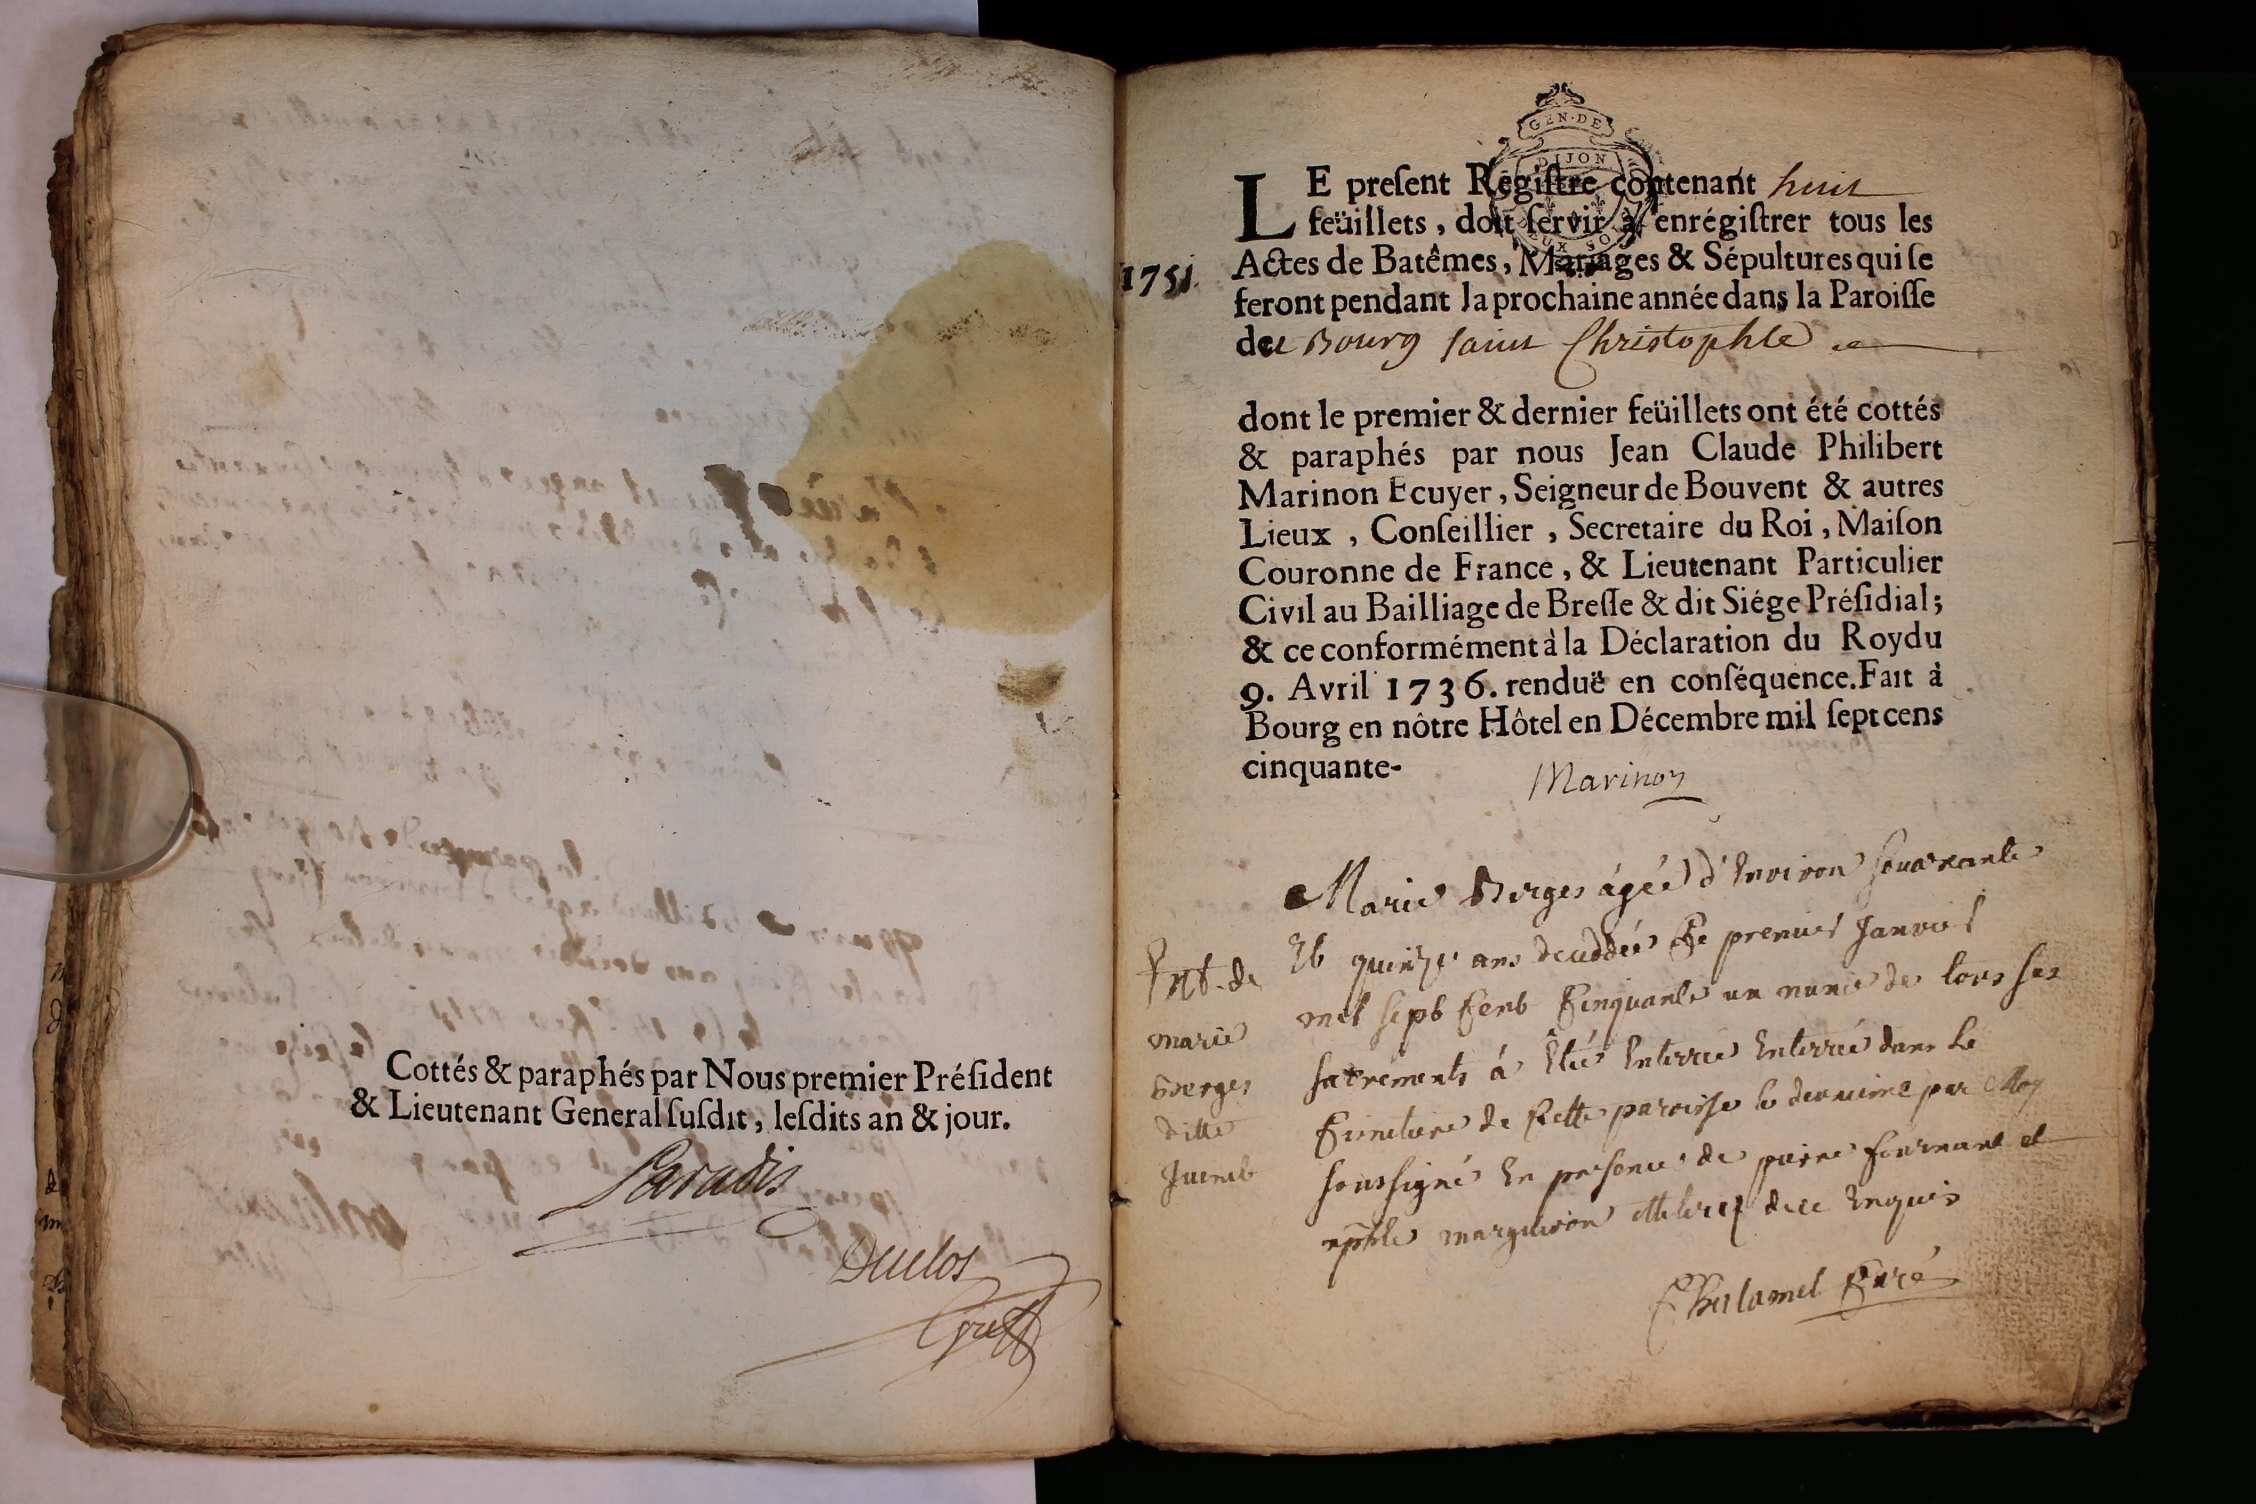 Cottés & paraphés par Nous premier Préſident
& Lieutenant General ſuſdit, leſdits an & jour.
Paradis
Duclos
Greff
GEN·DE
DIJON
DEUX SOLS
LE preſent Régiſtre contenant huit
feüillets, doit ſervir à enrégiſtrer tous les
Actes de Batêmes, Mariages & Sépultures qui ſe
1751
feront pendant la prochaine année dans la Paroiſſe
du Bourg saint Christophle
dont le premier & dernier feüillets ont été cottés
& paraphés par nous Jean Claude Philibert
Marinon Ecuyer, Seigneur de Bouvent & autres
Lieux, Conſeillier, Secretaire du Roi, Maiſon
Couronne de France, & Lieutenant Particulier
Civil au Bailliage de Breſſe & dit Siége Préſidial;
& ce conformément à la Déclaration du Roy du
9. Avril 1736. renduë en conſéquence. Fait à
Bourg en nôtre Hôtel en Décembre mil ſept cens
cinquante-
Marinon
Ent. de
marie
Berges
ditte
Marie Berges agée d'Environ soixante
Et quinze ans decedée Le premier Janvier
mil sept Cent Cinquante un munie de tous ses
sacrements á Eté Enterrée Enterrée dans Le
Cimetiere de Cette paroisse le deuxieme par Moy
soussigné En presence de pierre fournant et
marguiron illeterez de ce Enquis
Chalamel Curé